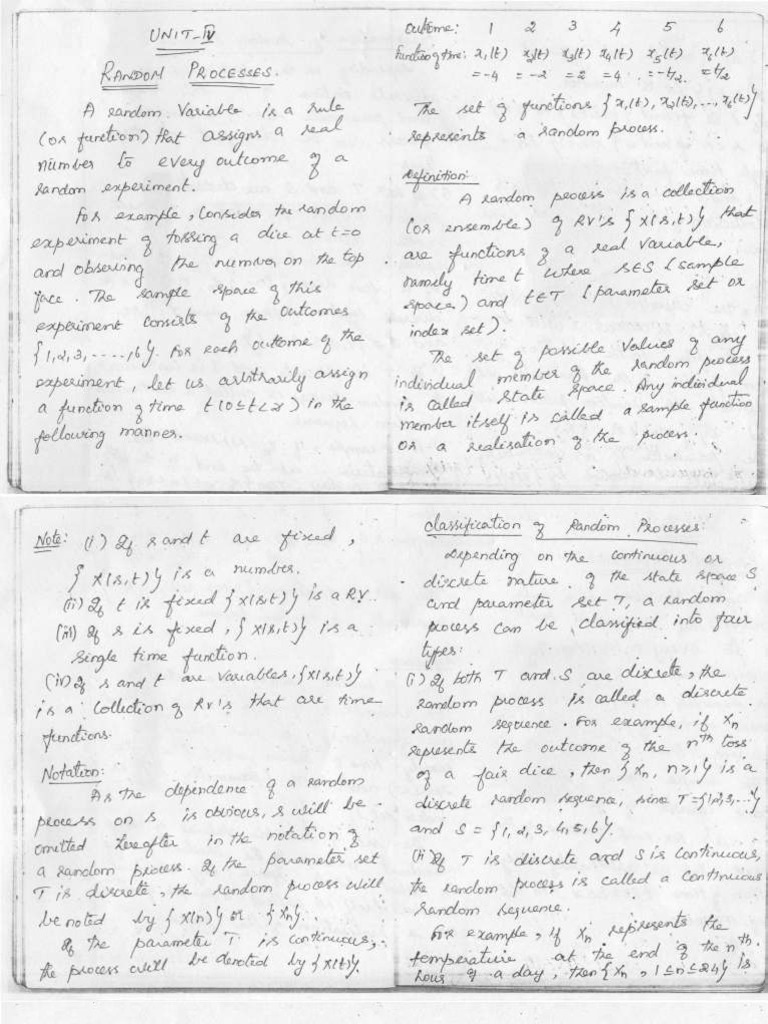 UNIT-IV
RANDOM PROCESSES.
A random variable is a rule
(or function) that assigns a real
number to every outcome of a
random experiment.
For example, consider the random
experiment of tossing a dice at t=0
and observing the number on the top
face. The sample space of this
experiment consists of the outcomes
{1,2,3,-----,6}. For each outcome of the
experiment, let us arbitrarily assign
a function of time t(0≤t<∞) in the
following manner.
Outcome: 1 2 3 4 5 6
Function of time: x₁(t) x₂(t) x₃(t) x₄(t) x₅(t) x₆(t)
=-4 =-2 =2 =4 =-t/2 =t/2
The set of functions {x₁(t), x₂(t), ..., x₆(t)}
represents a random process.
Definition:
A random process is a collection
(or ensemble) of RV's {X(s,t)} that
are functions of a real variable,
namely time t where s∈S (sample
space) and t∈T (parameter set or
index set).
The set of possible values of any
individual member of the random process
is called state space. Any individual
member itself is called a sample function
or a realisation of the process.
Note: (i) If s and t are fixed,
{X(s,t)} is a number.
(ii) If t is fixed {X(s,t)} is a RV.
(iii) If s is fixed, {X(s,t)} is a
single time function.
(iv) If s and t are variables, {X(s,t)}
is a collection of RV's that are time
functions.
Notation:
As the dependence of a random
process on s is obvious, s will be
omitted hereafter in the notation of
a random process. If the parameter set
T is discrete, the random process will
be noted by {X(n)} or {Xn}.
If the parameter T is continuous,
the process will be denoted by {X(t)}.
Classification of Random Processes:
Depending on the continuous or
discrete nature of the state space S
and parameter set T, a random
process can be classified into four
types:
(i) If both T and S are discrete, the
random process is called a discrete
random sequence. For example, if Xn
represents the outcome of the nth toss
of a fair dice, then {Xn, n≥1} is a
discrete random sequence, since T={1,2,3,...}
and S = {1, 2, 3, 4, 5, 6}.
(ii) If T is discrete and S is continuous,
the random process is called a continuous
random sequence.
For example, if Xn represents the
temperature at the end of the nth
hour of a day, then {Xn, 1≤n≤24} is